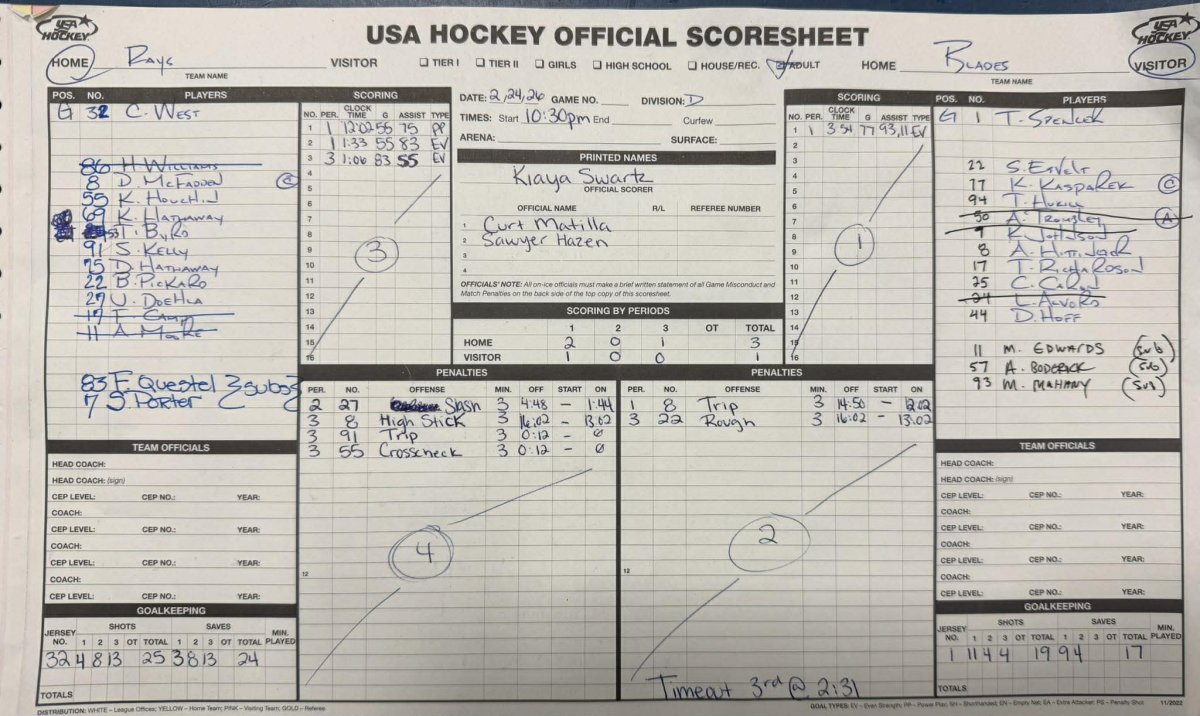 USA HOCKEY OFFICIAL SCORESHEET
USA HOCKEY
HOME Rays VISITOR
TEAM NAME
TIER I TIER II GIRLS HIGH SCHOOL HOUSE/REC. ADULT
HOME Blades VISITOR
TEAM NAME
USA HOCKEY
POS. NO. PLAYERS
G 32 C. West
86 H. Williams
8 D. McFadden C
55 K. Houchin
69 K. Hathaway
53 T. Byro
91 S. Kelly
75 D. Hathaway
22 B. Pickard
27 U. Doehla
17 T. Camp
11 A. Moore
83 F. Questel
7 S. Porter
2 subs
SCORING
NO. PER. CLOCK TIME G ASSIST TYPE
1 1 12:02 55 75 PP
2 1 1:33 55 83 EV
3 3 1:06 83 55 EV
4
5
6
7
8
9
10
11
12
13
14
15
16
3
DATE: 2/24/26 GAME NO. DIVISION: D
TIMES: Start 10:30pm End Curfew
ARENA: SURFACE:
PRINTED NAMES
Kiaya Swartz
OFFICIAL SCORER
OFFICIAL NAME R/L REFEREE NUMBER
1 Curt Matilla
2 Sawyer Hazen
3
4
OFFICIALS' NOTE: All on-ice officials must make a brief written statement of all Game Misconduct and
Match Penalties on the back side of the top copy of this scoresheet.
SCORING BY PERIODS
1 2 3 OT TOTAL
HOME 2 0 1 3
VISITOR 1 0 0 1
SCORING
NO. PER. CLOCK TIME G ASSIST TYPE
1 1 3:54 77 93,11 EV
2
3
4
5
6
7
8
9
10
11
12
13
14
15
16
1
POS. NO. PLAYERS
G 1 T. Spencer
22 S.
77 K. Kasparek C
94 T.
50 A. Trombley A
9 K. Johnson
8 A.
17 T. Richardson
25 C. Caron
24 L. Alvord
44 D. Hoff
11 M. Edwards (sub)
57 A. Boderick (sub)
93 M. Mahany (sub)
PENALTIES
PER. NO. OFFENSE MIN. OFF START ON
2 27 Slash 3 4:48 – 1:44
3 8 High Stick 3 16:02 – 13:02
3 91 Trip 3 0:12 – Ø
3 55 Crosscheck 3 0:12 – Ø
12
4
PENALTIES
PER. NO. OFFENSE MIN. OFF START ON
1 8 Trip 3 14:50 – 12:02
3 22 Rough 3 16:02 – 13:02
12
2
Timeout 3rd @ 2:31
TEAM OFFICIALS
HEAD COACH:
HEAD COACH: (sign)
CEP LEVEL: CEP NO.: YEAR:
COACH:
CEP LEVEL: CEP NO.: YEAR:
COACH:
CEP LEVEL: CEP NO.: YEAR:
COACH:
CEP LEVEL: CEP NO.: YEAR:
TEAM OFFICIALS
HEAD COACH:
HEAD COACH: (sign)
CEP LEVEL: CEP NO.: YEAR:
COACH:
CEP LEVEL: CEP NO.: YEAR:
COACH:
CEP LEVEL: CEP NO.: YEAR:
COACH:
CEP LEVEL: CEP NO.: YEAR:
GOALKEEPING
JERSEY NO. SHOTS SAVES MIN. PLAYED
1 2 3 OT TOTAL 1 2 3 OT TOTAL
32 4 8 13 25 3 8 13 24
TOTALS
GOALKEEPING
JERSEY NO. SHOTS SAVES MIN. PLAYED
1 2 3 OT TOTAL 1 2 3 OT TOTAL
1 11 4 4 19 9 4 17
TOTALS
DISTRIBUTION: WHITE – League Offices; YELLOW – Home Team; PINK – Visiting Team; GOLD – Referee
GOAL TYPES: EV – Even Strength; PP – Power Play; SH – Shorthanded; EN – Empty Net; EA – Extra Attacker; PS – Penalty Shot
11/2022